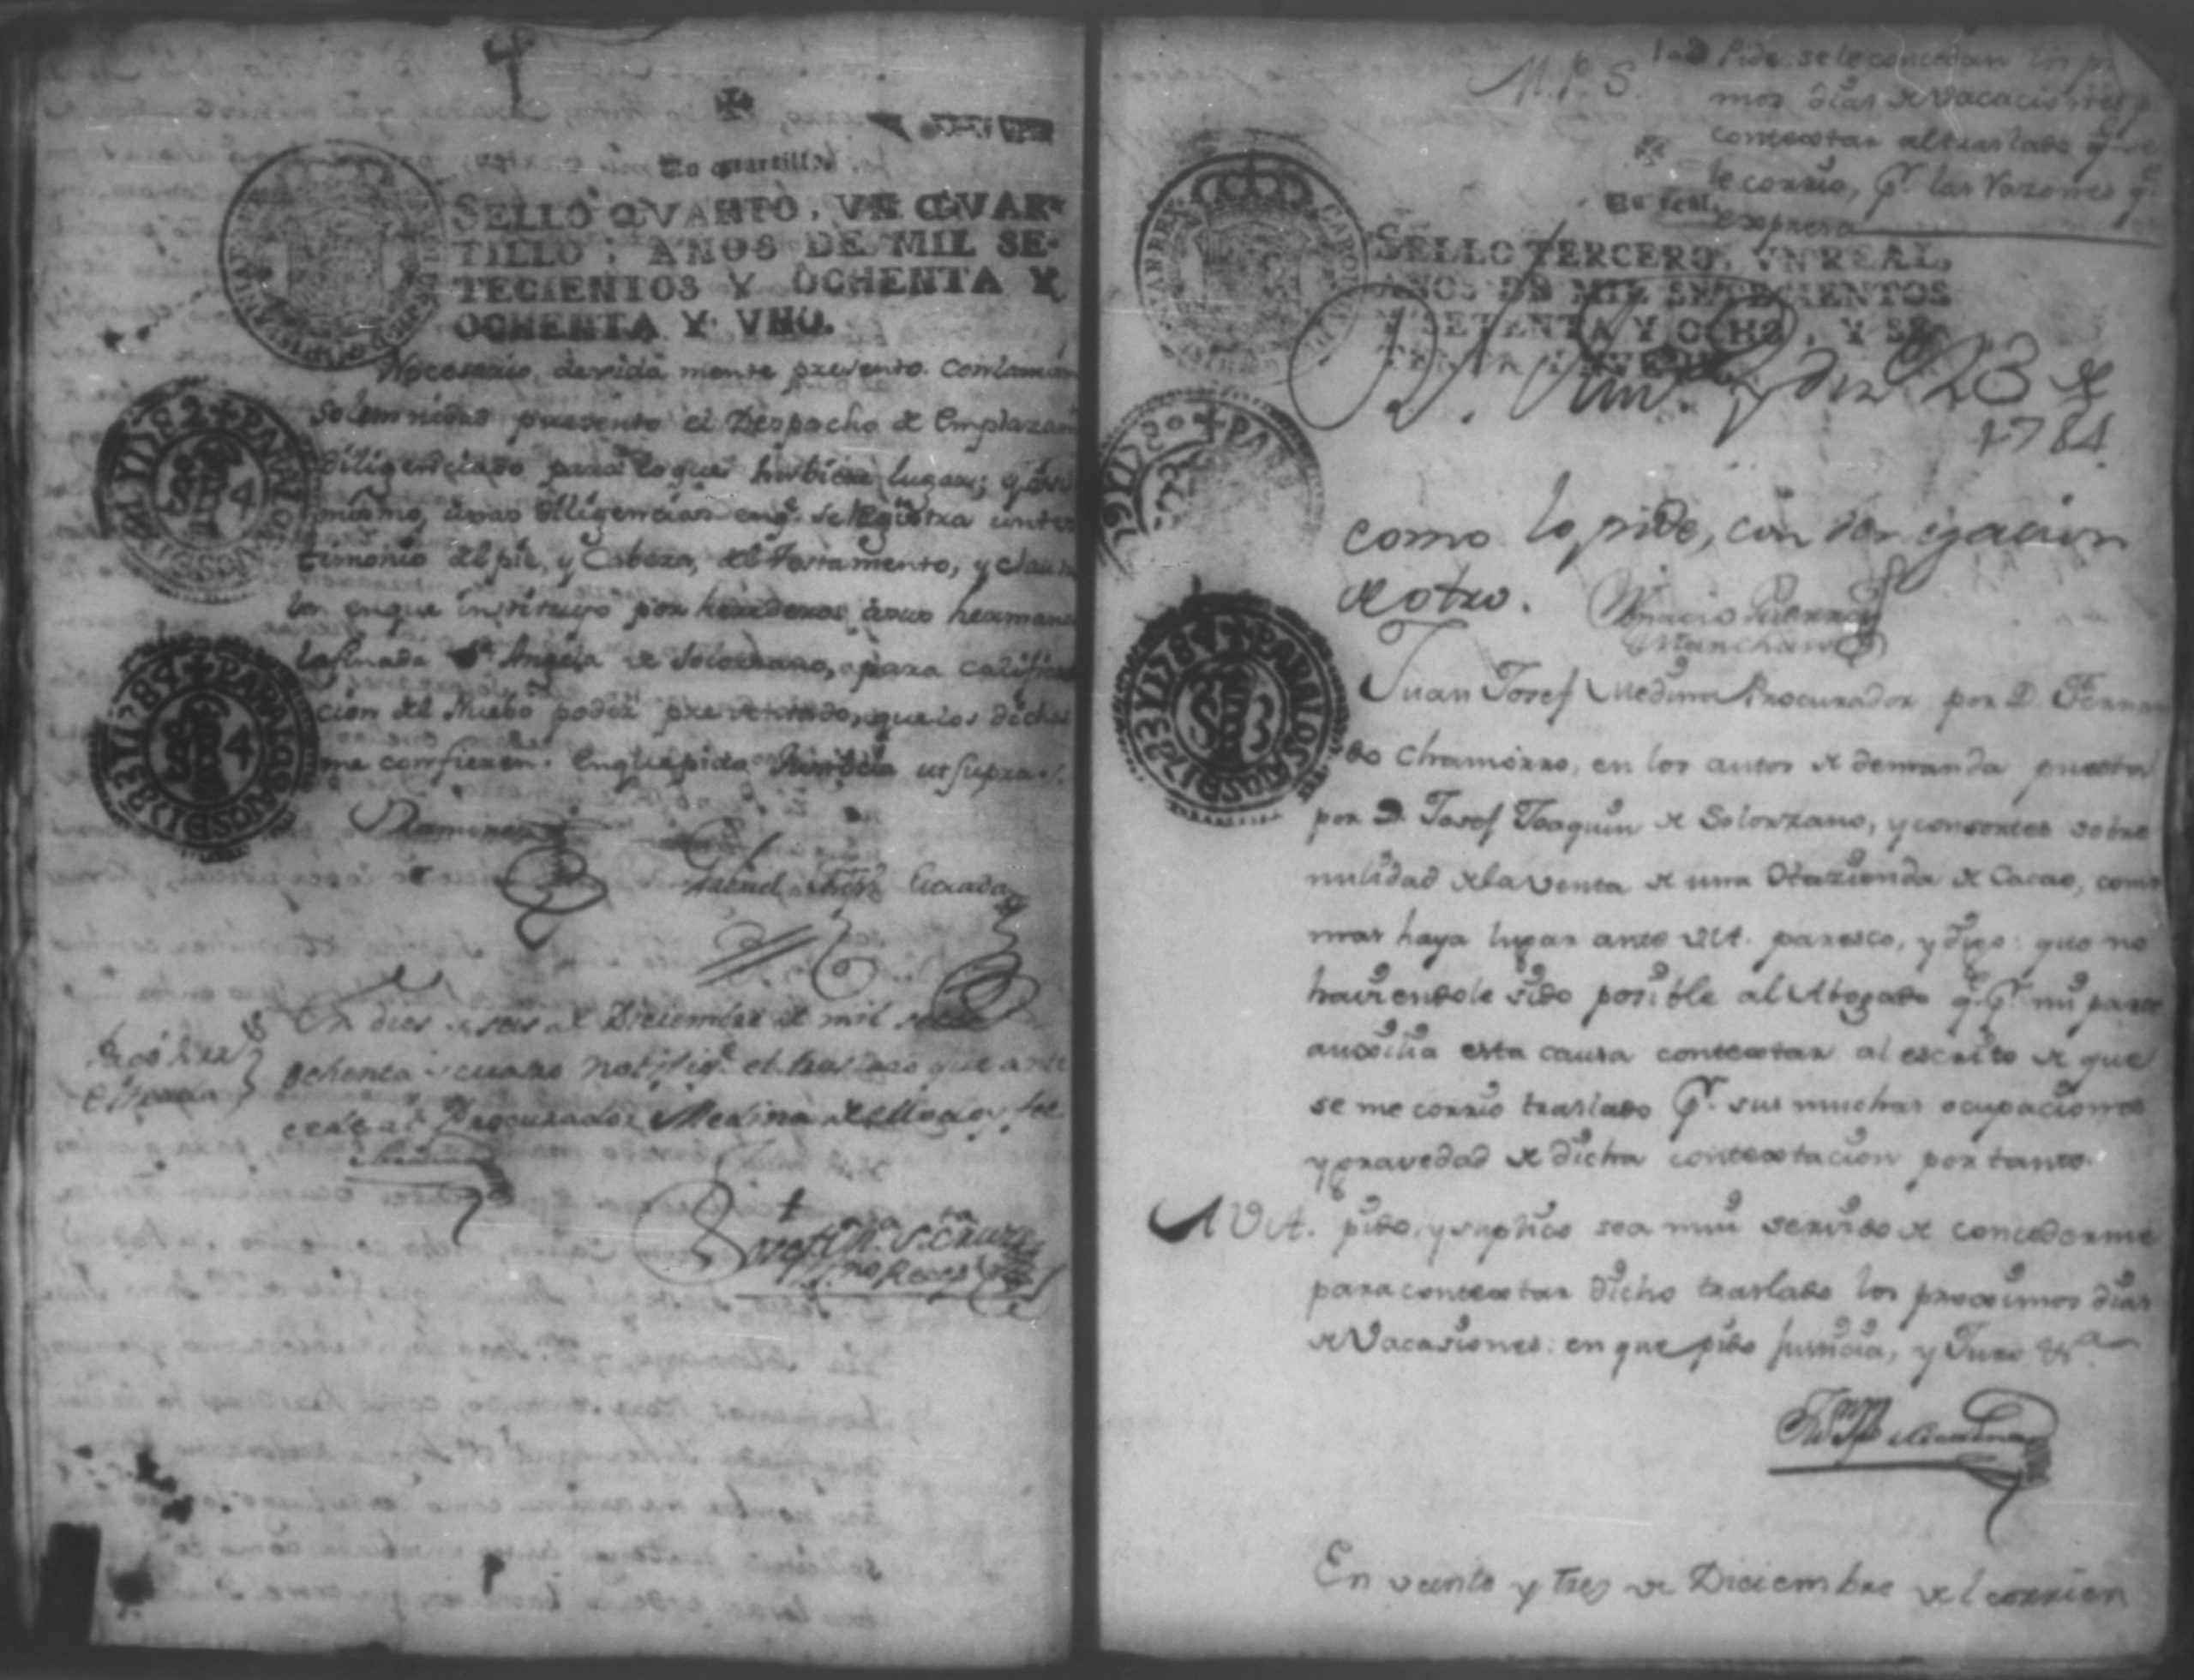 Un quartillo.
SELLO QVARTO, VN QVAR-
TILLO: AÑOS DE MIL SE-
TECIENTOS Y OCHENTA Y
OCHENTA Y VNO.
Nocesario, devida mente presento. Con la misma
Solemnidad presento el Despacho de Emplazam
diligenciado para lo que hubiere lugar; y assi
mismo, unas diligencias en q.e se registra un tes
timonio del pie, y Cabeza, del Testamento, y clausu
las en que instituyó por herederos à sus hermanos
la finada D.a Angela de Solorzano, para califica
cion del Nuebo poder presentado, que los dichos
me confieren. En que pido Justicia ut supra.
Ramirez
Estrada
En dies y seis de Diciembre de mil sete
ochenta y cuatro notifiq.e el traslado que ante
cede al Procurador Medina de ello doy fee
M. P. S.
Pide se le concedan los
mos dias de vacaciones p.a
contextar al traslado q.e se
le corrio, p.r las razones q.e
expresa
Un real.
SELLO TERCERO, VN REAL,
AÑOS DE MIL SETECIENTOS
Y SETENTA Y OCHO, Y SE-
TENTA Y NUEVE.
23 de
1784
como lo pide, con denegacion
de otro.
Ignacio Guerra
Marchan
Juan Josef Medina Procurador por D. Fernan
do Chamorro, en los autos de demanda puesta
por D. Josef Joaquin de Solorzano, y consortes sobre
nulidad de la venta de una Hazienda de Cacao, como
mas haya lugar ante V.A. paresco, y digo: que no
haviendole sido posible al Abogado q.e p.r mi parte
auxilia esta causa contextar al escrito de que
se me corrio traslado p.r sus muchas ocupaciones
y gravedad de dicha contextacion por tanto.
A V.A. pido, y suplico sea mui servido de concederme
para contextar dicho traslado los proximos dias
de Vacasiones: en que pido justicia, y Juro &.a
En veinte y tres de Diciembre del corrien